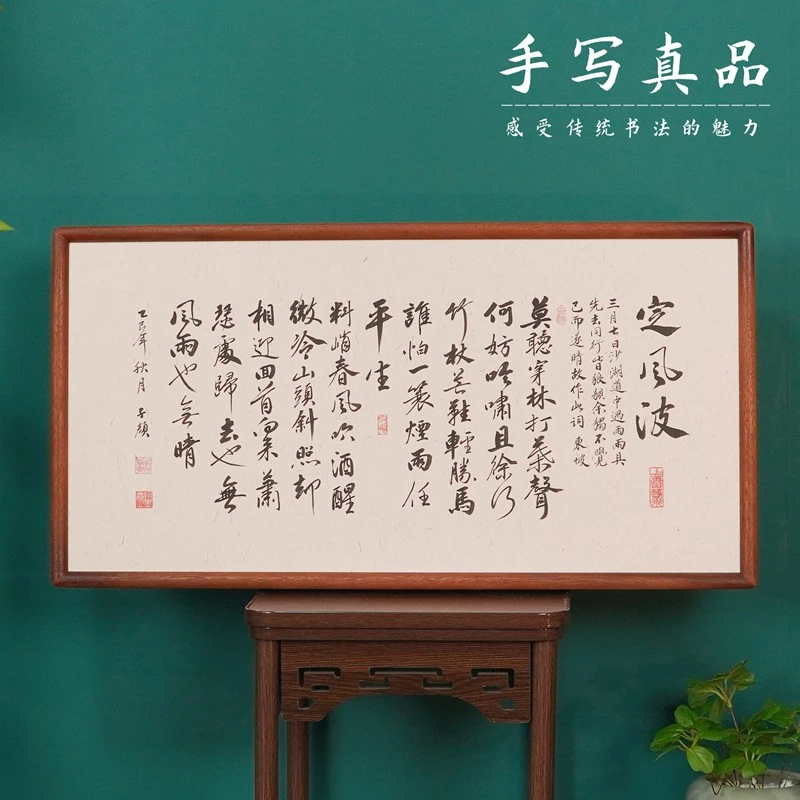 手写真品
感受传统书法的魅力
定风波
三月七日沙湖道中遇雨雨具
先去同行皆狼狈余独不觉
已而遂晴故作此词 东坡
莫聽穿林打葉聲
何妨吟嘯且徐行
竹杖芒鞋輕勝馬
誰怕一蓑煙雨任
平生
料峭春風吹酒醒
微冷山頭斜照却
相迎回首向来蕭
瑟處歸去也無
風雨也無晴
乙巳年秋月